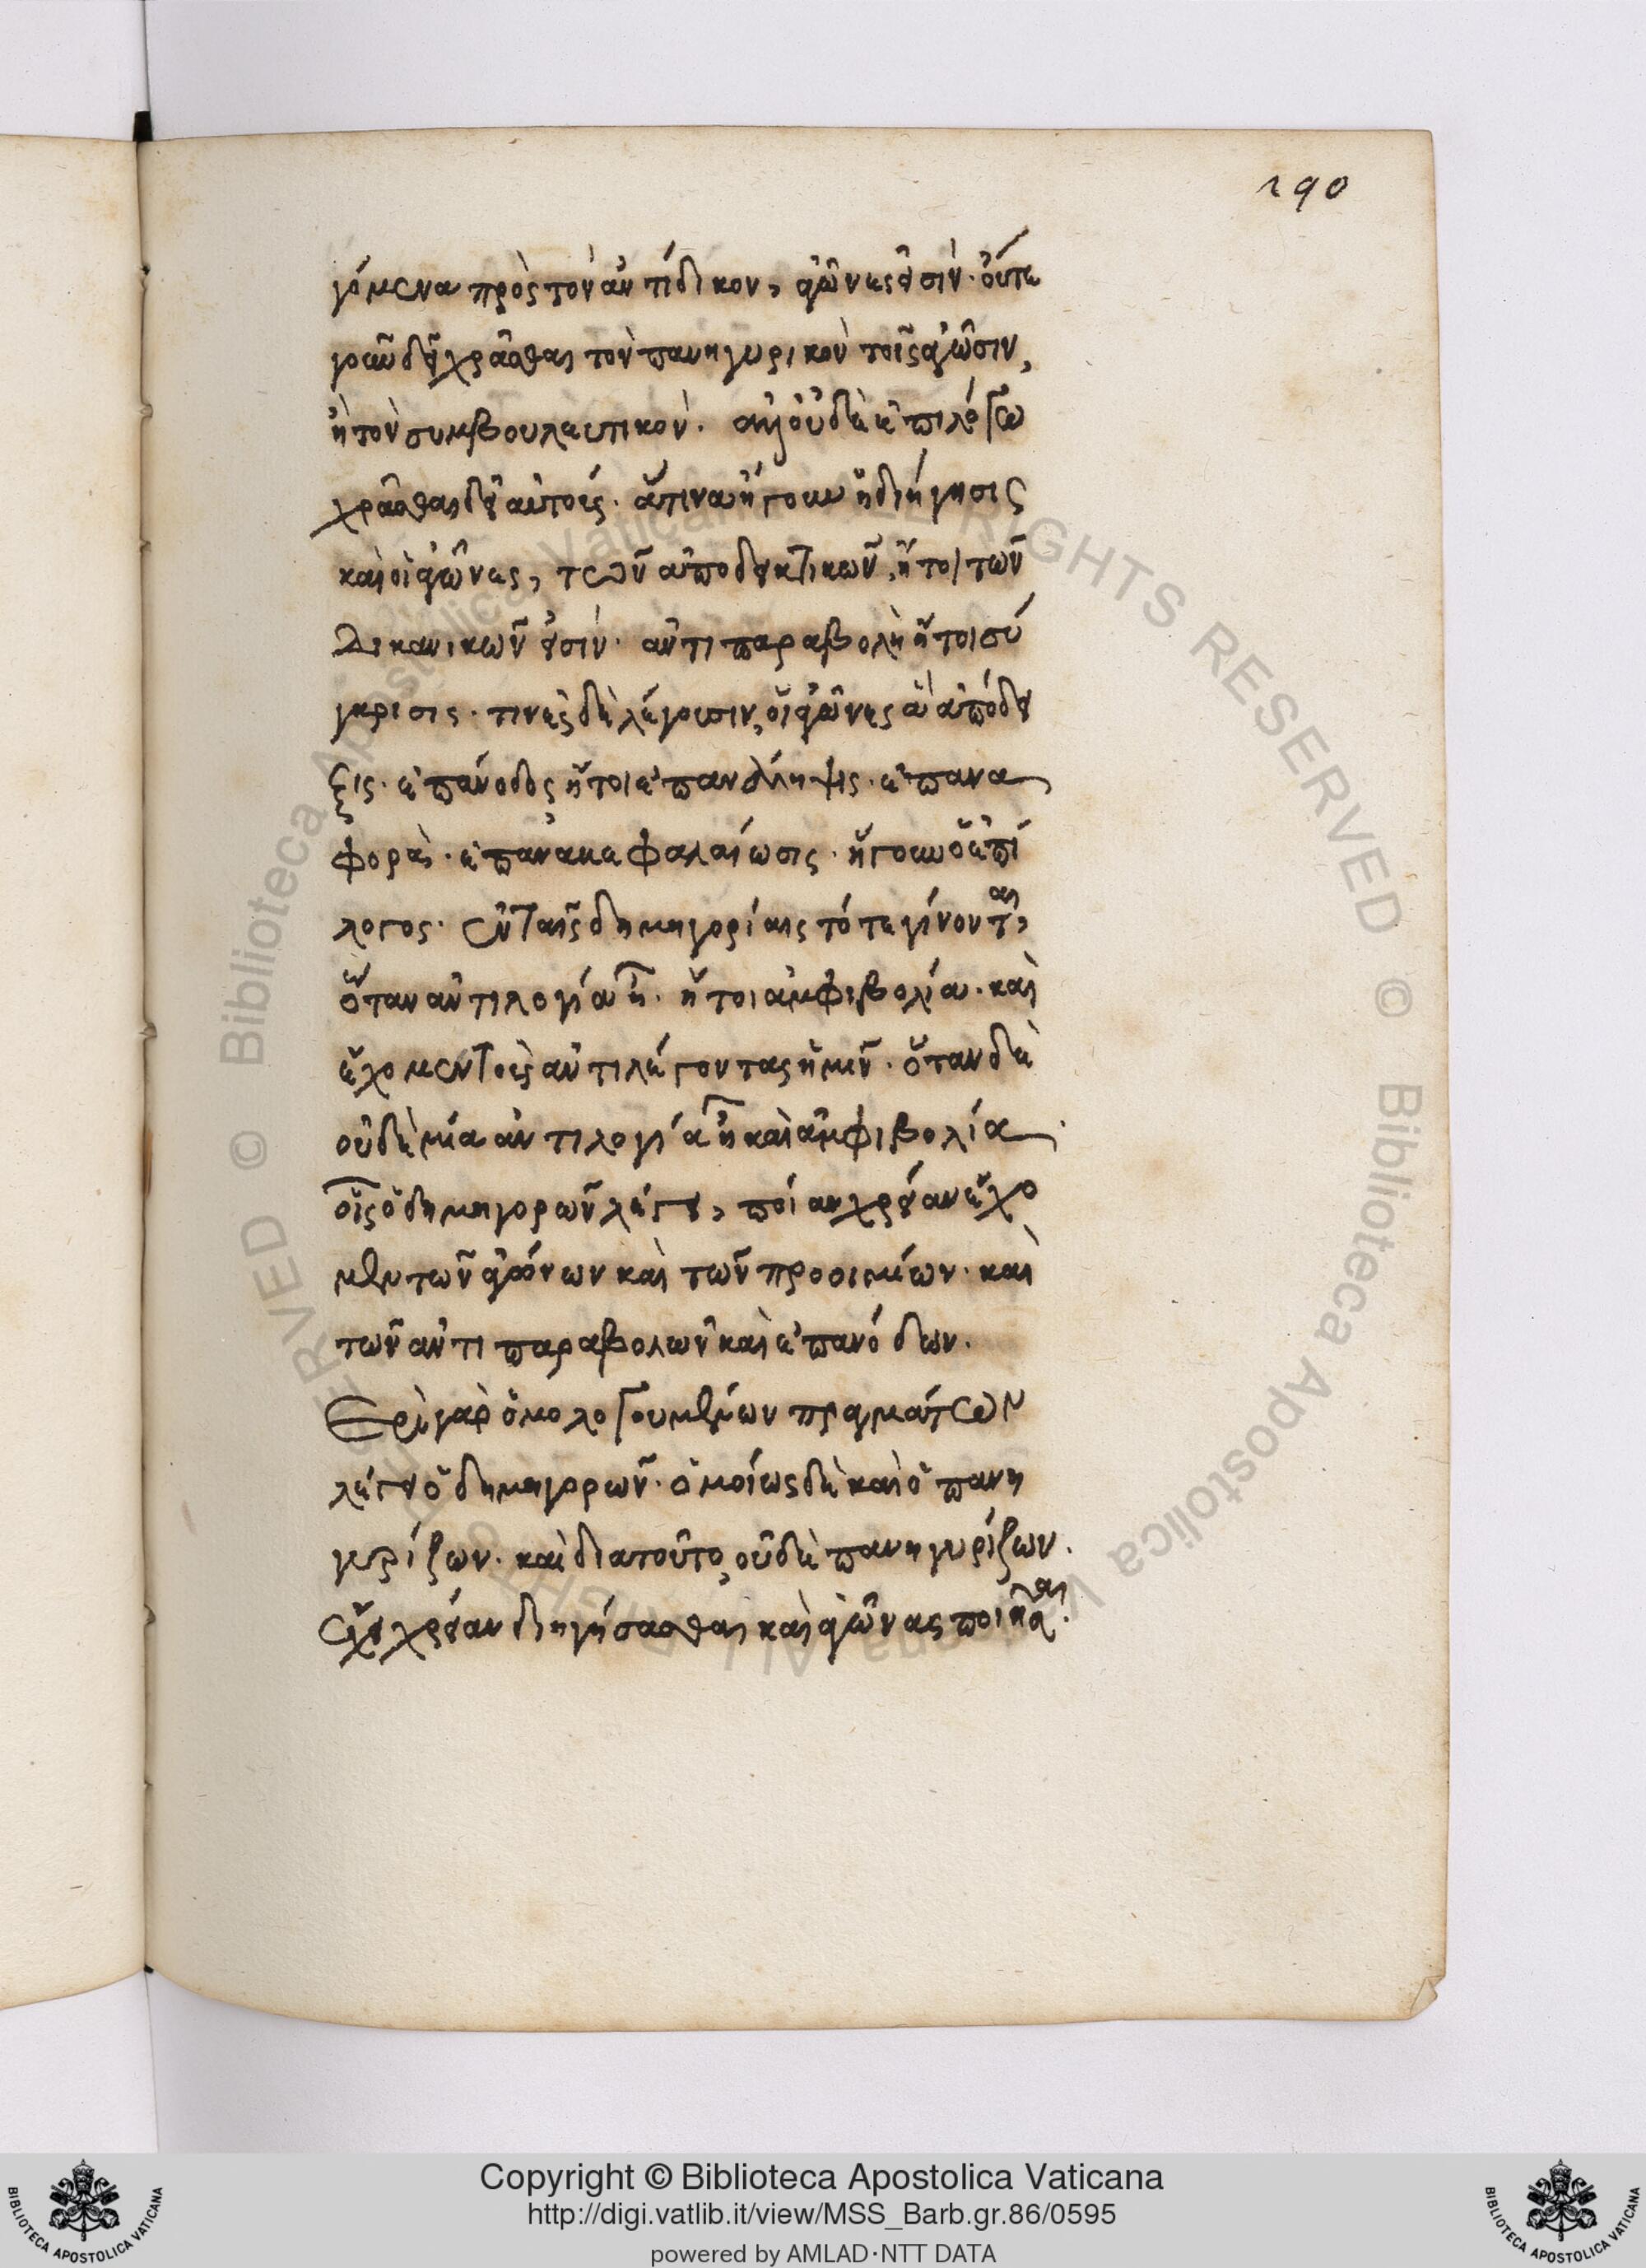 290
γόμενα πρὸς τὸν ἀντίδικον, ἀγῶνες εἰσὶν. οὔτε
γοῦν δεῖ χρᾶσθαι τὸν πανηγυρικὸν τοῖς ἀγῶσιν,
ἢ τὸν συμβουλευτικὸν. ἀλλ' οὐδὲ ἐπιλόγω
χρᾶσθαι δεῖ αὐτούς. ἅτινα ἤγουν ἡ διήγησις
καὶ οἱ ἀγῶνες, τῶν ἀποδεικτικῶν, ἤτοι τῶν
δικανικῶν εἰσὶν. ἀντιπαραβολὴ ἤτοι σύ
γκρισις. τινὲς δὲ λέγουσιν, οἱ ἀγῶνες ἀπόδει
ξις. ἐπάνοδος ἤτοι ἐπανάληψις. ἐπανα
φορὰ. ἐπανακεφαλαίωσις. ἤγουν ὁ ἐπί
λογος. ἐν ταῖς δημηγορίαις τότε γίνονται,
ὅταν ἀντιλογία ἦ. ἤτοι ἀμφιβολία. καὶ
ἔχομεν τοὺς ἀντιλέγοντας ἡμῖν. ὅταν δὲ
οὐδὲ μία ἀντιλογία ἦ καὶ ἀμφιβολία
οἷς ὁ δημηγορῶν λέγει, ποίαν χρείαν ἔχο
μεν τῶν ἀγώνων καὶ τῶν προοιμίων. καὶ
τῶν ἀντιπαραβολῶν καὶ ἐπανόδων.
Περὶ γὰρ ὁμολογουμένων πραγμάτων
λέγει ὁ δημηγορῶν. ὁμοίως δὲ καὶ ὁ πανη
γυρίζων. καὶ διατοῦτο, οὐδὲ πανηγυρίζων.
ἔχει χρείαν διηγήσασθαι καὶ ἀγῶνας ποιῆσαι.
Copyright © Biblioteca Apostolica Vaticana
http://digi.vatlib.it/view/MSS_Barb.gr.86/0595
powered by AMLAD·NTT DATA
BIBLIOTECA APOSTOLICA VATICANA
BIBLIOTECA APOSTOLICA VATICANA
© Biblioteca Apostolica Vaticana ALL RIGHTS RESERVED © Biblioteca Apostolica Vaticana ALL RIGHTS RESERVED